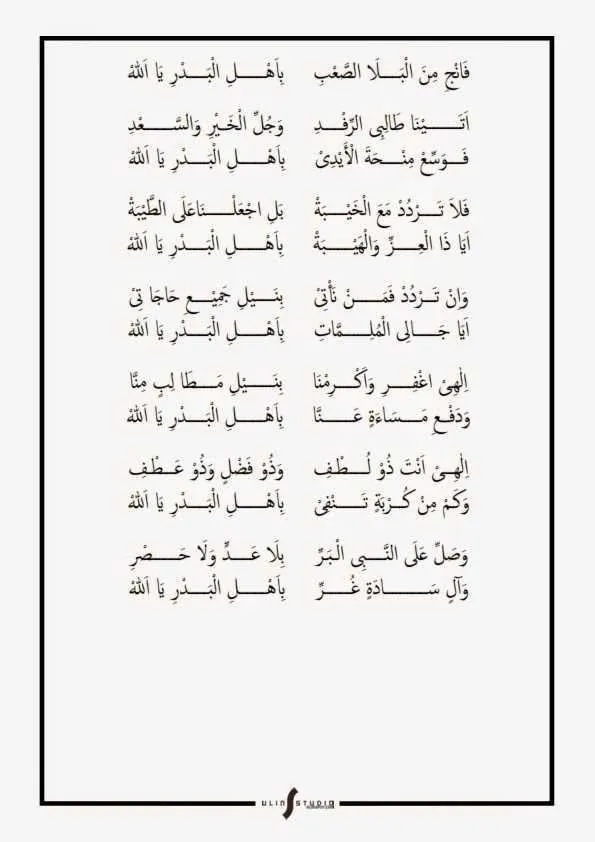 فَانْجِ مِنَ الْبَلَا الصَّعْبِ بِاَهْلِ الْبَدْرِ يَا اَللهُ
اَتَيْنَا طَالِبِى الرِّفْدِ وَجُلِّ الْخَيْرِ وَالسَّعْدِ
فَوَسِّعْ مِنْحَةَ الْأَيْدِىْ بِاَهْلِ الْبَدْرِ يَا اَللهُ
فَلاَ تَرْدُدْ مَعَ الْخَيْبَةْ بَلِ اجْعَلْنَاعَلَى الطَّيْبَةْ
اَيَا ذَا الْعِزِّ وَالْهَيْبَةْ بِاَهْلِ الْبَدْرِ يَا اَللهُ
وَاِنْ تَرْدُدْ فَمَنْ نَأْتِىْ بِنَيْلِ جَمِيْعِ حَاجَا تِىْ
اَيَا جَالِى الْمُلِمَّاتِ بِاَهْلِ الْبَدْرِ يَا اَللهُ
اِلٰهِىْ اغْفِرِ وَاَكْرِمْنَا بِنَيْلِ مَطَا لِبٍ مِنَّا
وَدَفْعِ مَسَاءَةٍ عَنَّا بِاَهْلِ الْبَدْرِ يَا اَللهُ
اِلٰهِىْ اَنْتَ ذُوْ لُطْفٍ وَذُوْ فَضْلٍ وَذُوْ عَطْفٍ
وَكَمْ مِنْ كُرْبَةٍ تَنْفِىْ بِاَهْلِ الْبَدْرِ يَا اَللهُ
وَصَلِّ عَلَى النَّبِى الْبَرِّ بِلَا عَدٍّ وَلَا حَصْرِ
وَآلِ سَادَةٍ غُرِّ بِاَهْلِ الْبَدْرِ يَا اَللهُ
ULIN STUDIO